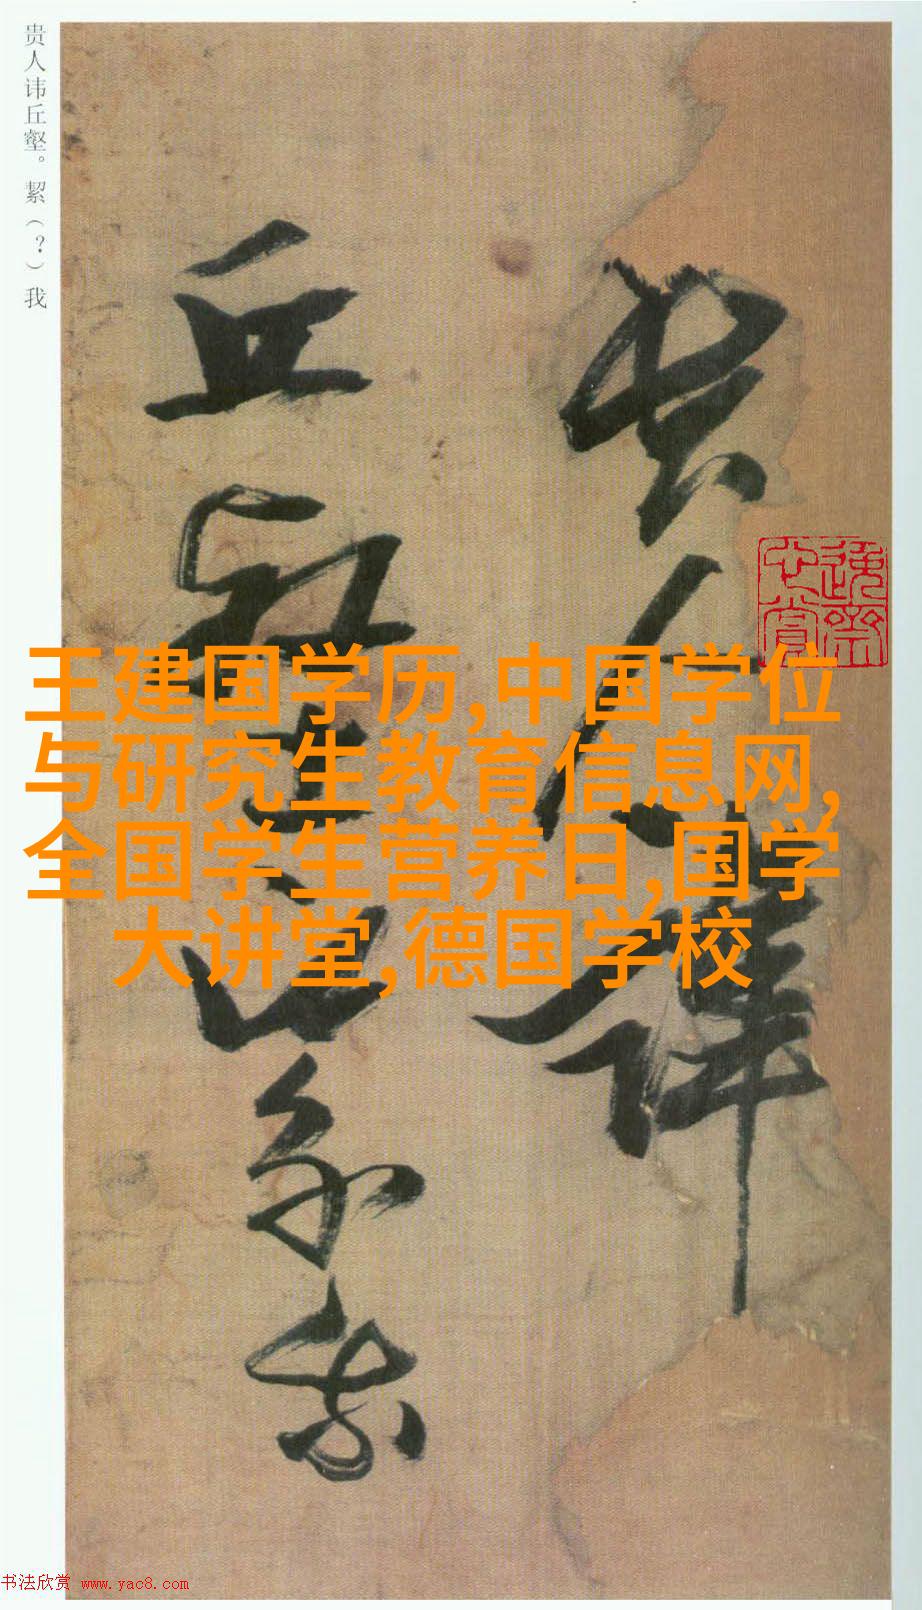 贵人讳丘壑。絜（？）我
贵人讳
丘壑絜我
王建国学历,中国学位
与研究生教育信息网,
全国学生营养日,国学
大讲堂,德国学校
书法欣赏 www.yac8.com